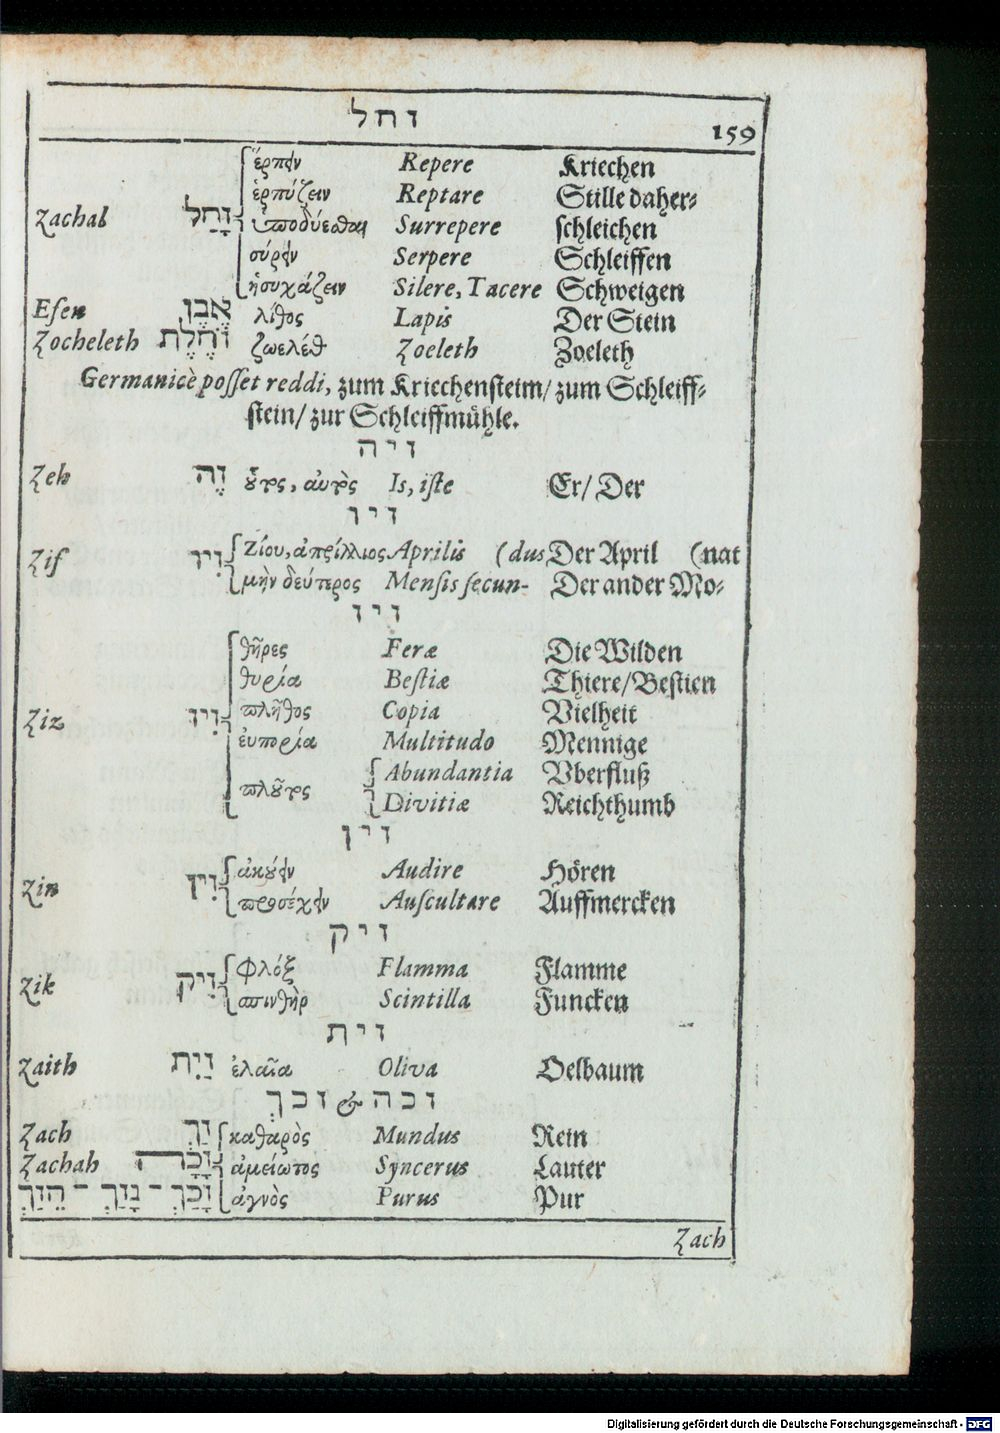 זחל
159
ἕρπειν Repere Kriechen
ἑρπύζειν Reptare Stille daher-
Zachal זָחַל ὑποδύεσθαι Surrepere schleichen
σύρειν Serpere Schleiffen
ἡσυχάζειν Silere, Tacere Schweigen
Efen אֶבֶן λίθος Lapis Der Stein
Zocheleth זֹחֶלֶת ζωελέθ Zoeleth Zoeleth
Germanicè posset reddi, zum Kriechensteim/ zum Schleiff-
stein/ zur Schleiffmühle.
זיה
Zeh זֶה οὗτος, αὐτὸς Is, iste Er/ Der
זיו
Zif זִיו Ζίου, ἀπρίλλιος Aprilis (dus Der April (nat
μὴν δεύτερος Mensis secun- Der ander Mo-
זיז
θῆρες Feræ Die Wilden
θυρία Bestiæ Thiere/Bestien
Ziz זִיז πλῆθος Copia Vielheit
ἐυπορία Multitudo Mennige
πλοῦτος Abundantia Vberfluß
Divitiæ Reichthumb
זין
Zin זִין ἀκούειν Audire Hören
προσέχειν Auscultare Auffmercken
זיק
Zik זִיק φλόξ Flamma Flamme
σπινθὴρ Scintilla Funcken
זית
Zaith זַיִת ἐλαῖα Oliva Oelbaum
זכה & זכך
Zach זַךְ καθαρὸς Mundus Rein
Zachah זָכָה ἀμείωτος Syncerus Lauter
זָכַךְ - נָזַךְ - הֵזַךְ ἁγνὸς Purus Pur
Zach
Digitalisierung gefördert durch die Deutsche Forschungsgemeinschaft - DFG